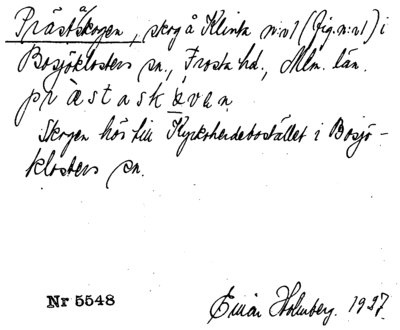 Prästskogen, skog å Klinta nr 1 (fig. nr 1) i
Bosjöklosters sn., Frosta hd., Mlm. län.
præstaskåven
Skogen hör till Kyrkoherdebostället i Bosjö-
klosters sn.
Nr 5548
Einar Holmberg. 1927